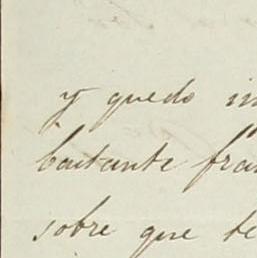 y quedo in
bastante fran
sobre que te